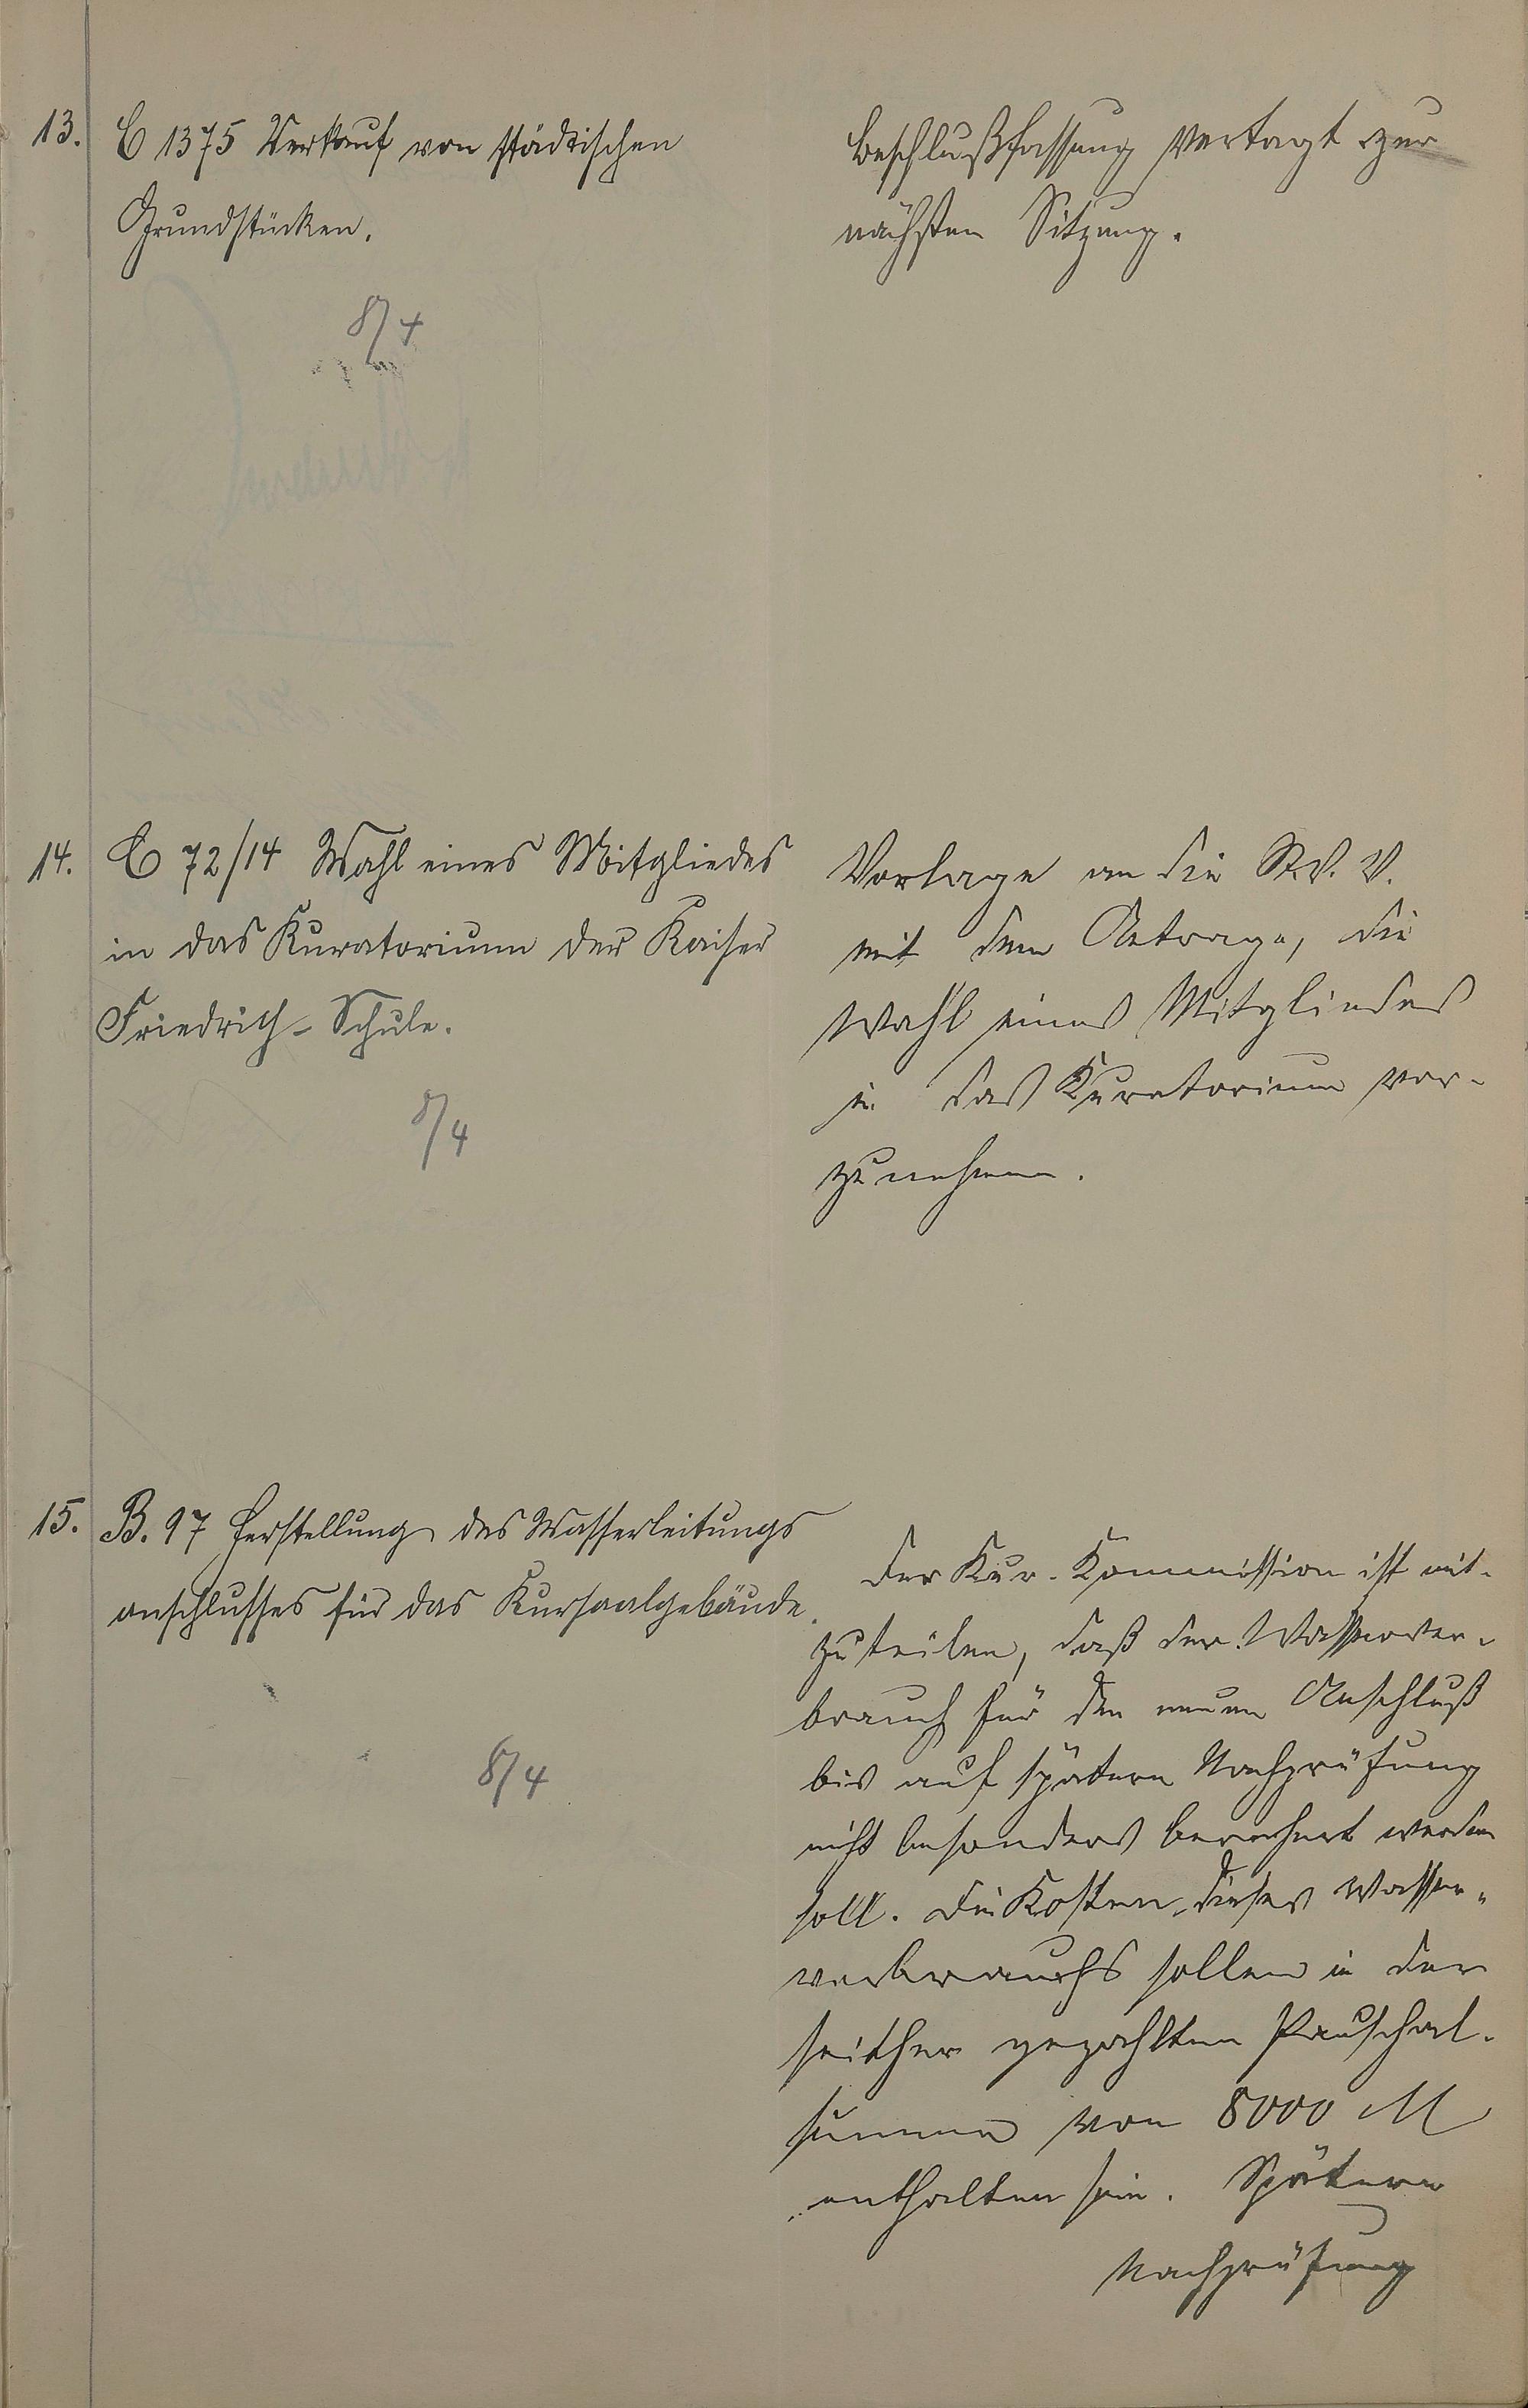 13. C 1375 Verkauf von städtischen
Grundstücken.
8/4
Beschlußfassung vertagt zur
nächsten Sitzung.
14. C 72/14 Wahl eines Mitgliedes
in das Kuratorium der Kaiser
Friedrich-Schule.
8/4
Vorlage an die St. V. V.
mit dem Antrage, die
Wahl eines Mitgliedes
in das Kuratorium vor-
zunehmen.
15. B. 97 Herstellung des Wasserleitungs
anschlusses für das Kursaalgebäude.
8/4
Der Kur-Kommission ist mit-
zuteilen, daß der Wasserver-
brauch für den neuen Anschluß
bis auf spätere Nachprüfung
nicht besonders berechnet werden
soll. Die Kosten dieses Wasser-
verbrauchs sollen in der
seither gezahlten Pauschal-
summe von 8000 M
enthalten sein. Spätere
Nachprüfung